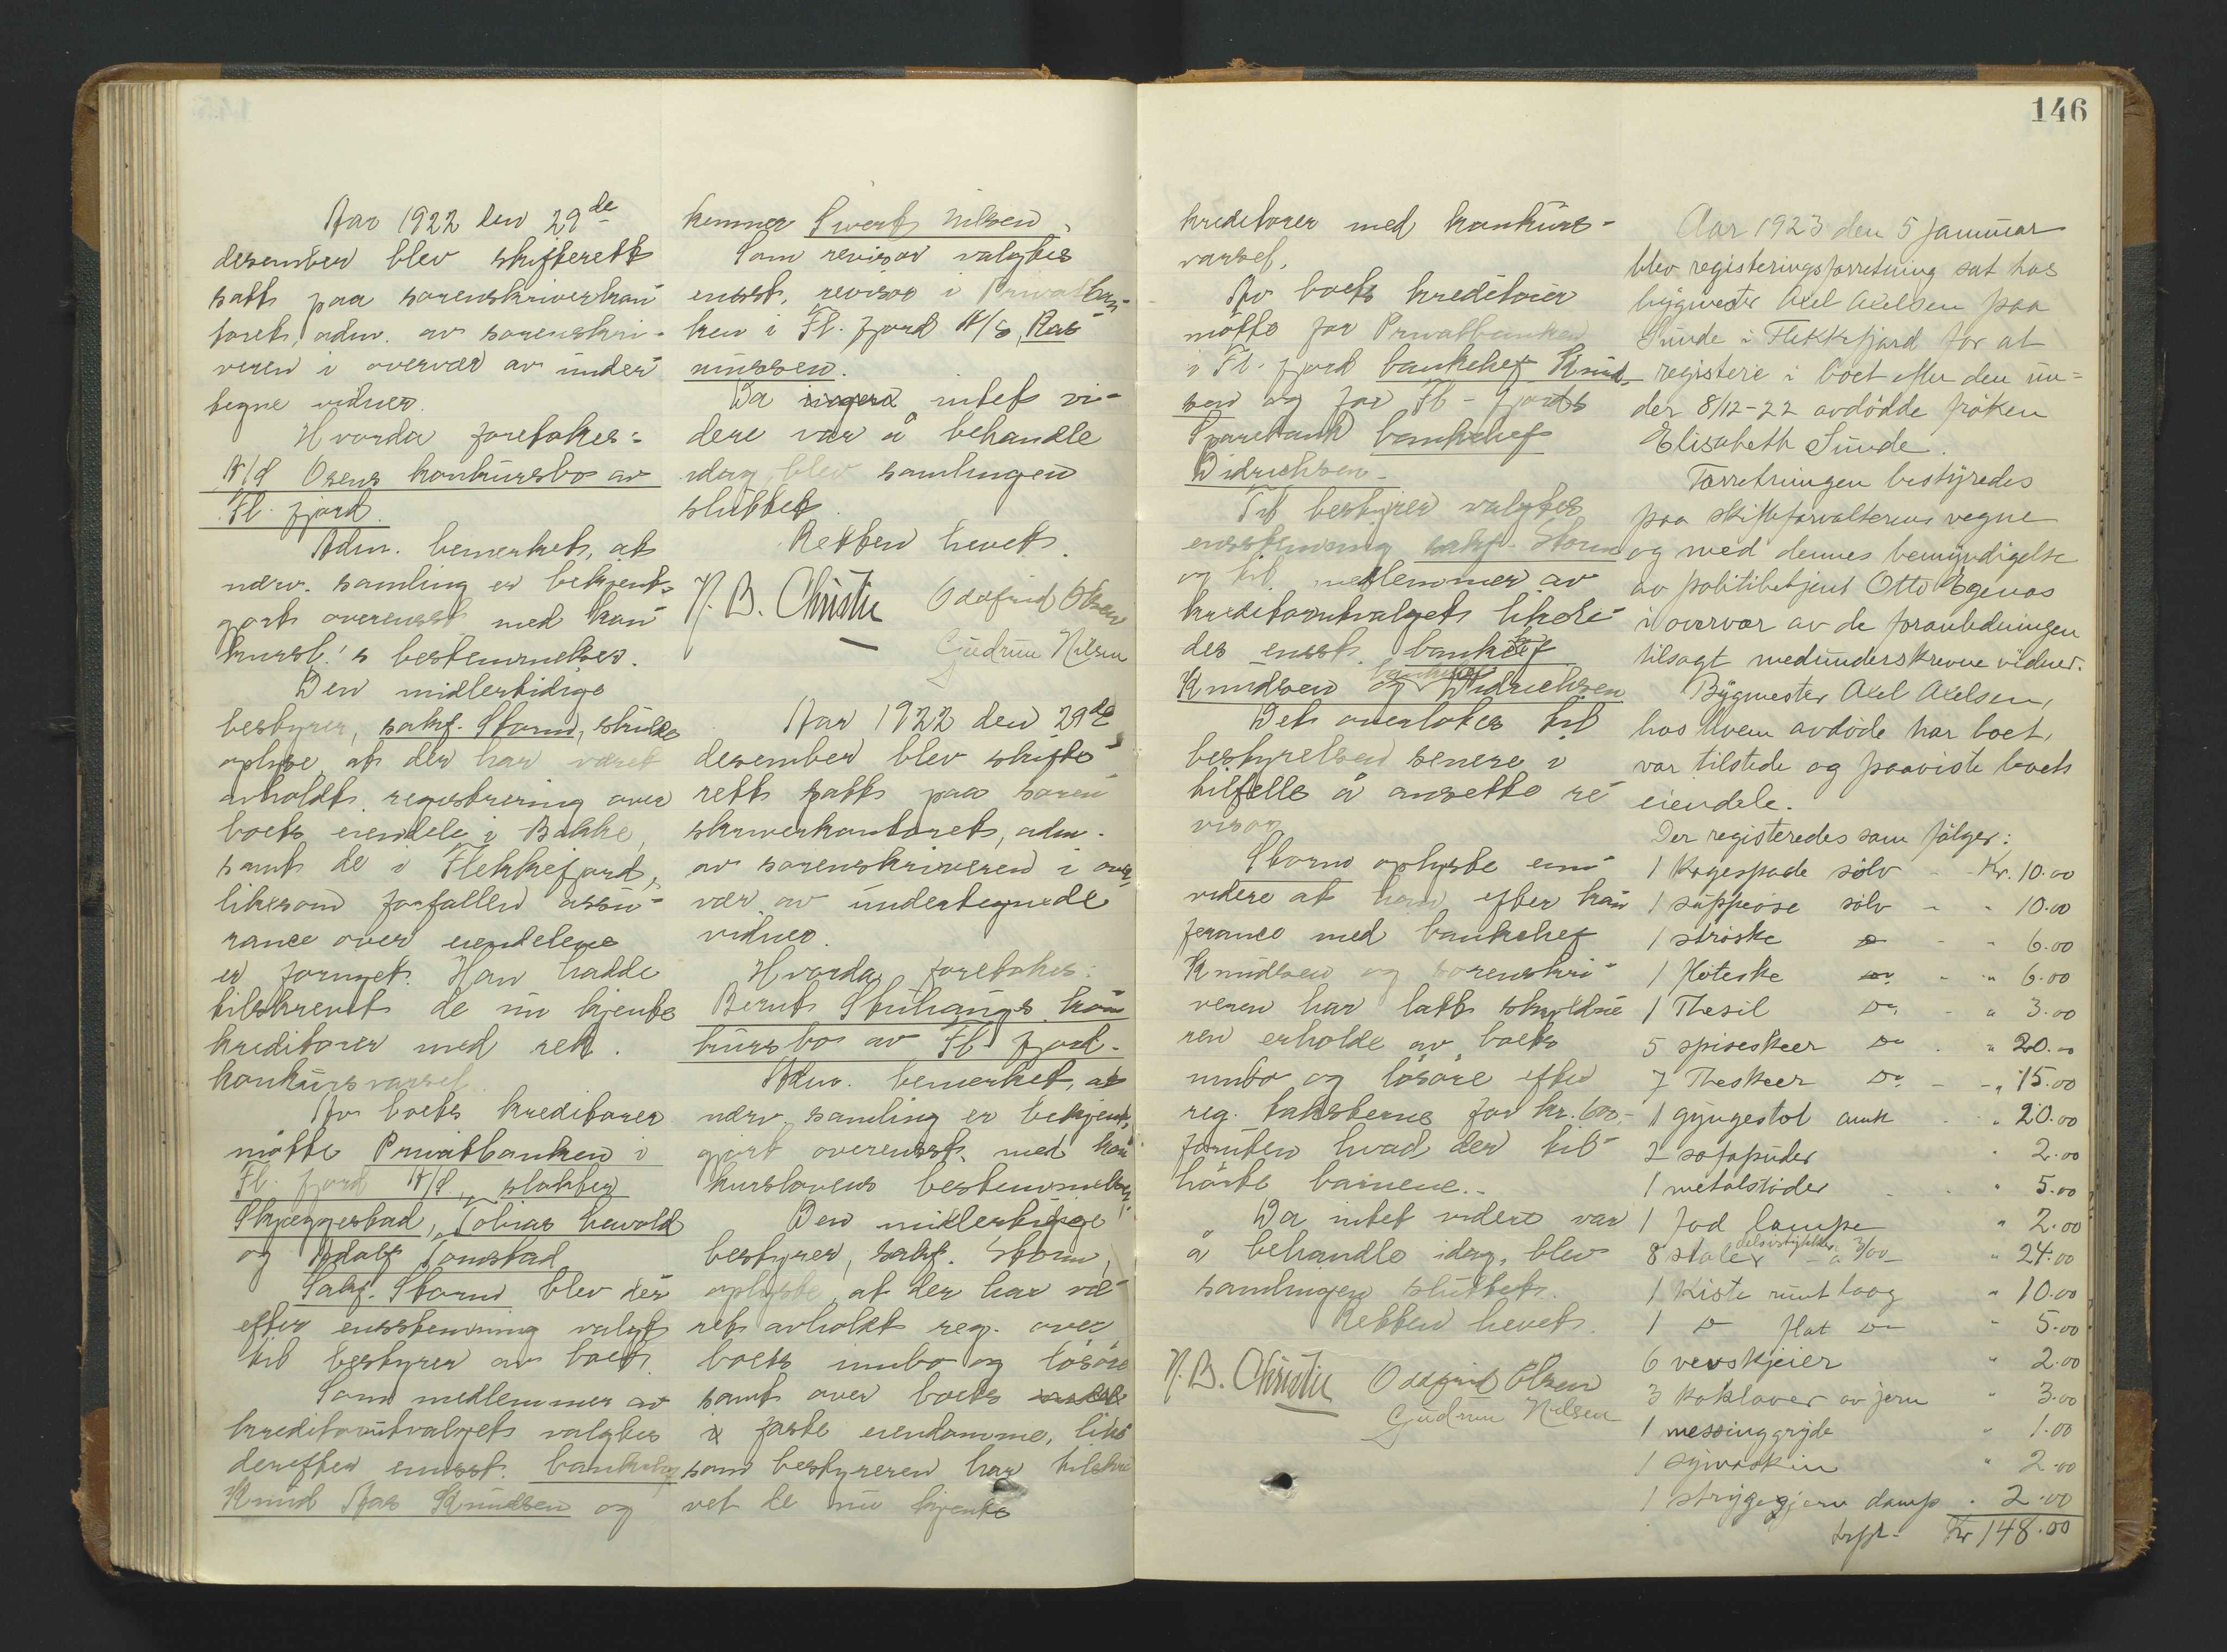 Aar 1922 den 29de
desember blev skifterett
satt paa sorenskriverkon-
toret, adm. av sorenskri-
veren i overvær av under-
tegne vidner.
Hvorda foretokes:
A/S Osens konkursbo av
Fl. fjord.
Adm. bemerket, at
nærv. samling er bekjent-
gjort overensst. med kon-
kursl.'s bestemmelser.
Den midlertidige
bestyrer, sakf. Storm,
oplyste, at der har været
avholdt registrering over
boets eiendele i Bakke,
samt de i Flekkefjord,
likesom forfallen assu-
rance over eiendelene
er fornyet. Han hadde
tilskrevet de nu kjente
kreditorer med rek.
konkursvarsel.
Av boets kreditorer
møtte Privatbanken i
Fl. fjord A/S, slakter
Skreggestad, Tobias Levold
og Adolf Tomstad
Sakf. Storm blev der-
efter ensstemmig valgt
til bestyrer av boet.
Som medlemmer av
kreditorutvalget valgtes
derefter ensst. bankchef
Knud Aas Knudsen og
kemner Sivert Nilsen.
Som revisor valgtes
ensst. revisor i Privatban-
ken i Fl. fjord A/S, Ras-
mussen.
Da intet vi-
dere var å behandle
idag, blev samlingen
sluttet.
Retten hevet.
N. B. Christie Oddfrid Olsen
Gudrun Nilsen
Aar 1922 den 29de
desember blev skifte-
rett satt paa soren-
skriverkontoret, adm.
av sorenskriveren i over-
vær av undertegnede
vidner.
Hvorda foretokes:
Bernt Stuhaugs kon-
kursbo av Fl. fjord.
Adm. bemerket, at
nærv. samling er bekjent-
gjort overensst. med kon-
kurslovens bestemmelser.
Den midlertidige
bestyrer, sakf. Storm,
oplyste, at der har væ-
ret avholdt reg. over
boets innbo og løsøre
samt over boets
faste eiendomme, like-
som bestyreren har tilskre-
vet de nu kjente
146
kreditorer med konkurs-
varsel.
Av boets kreditorer
møtte for Privatbanken
i Fl. fjord bankchef Knud-
sen og for Fl- fjords
Sparebank bankchef
Didrichsen.
Til bestyrer valgtes
ensstemmig sakf. Storm
og til medlemmer av
kreditorutvalget likele-
des ensst. bankchef
Knudsen og bankchef Didrichsen
Det overlotes til
bestyrelsen senere i
tilfelle å ansette re-
visor.
Storm oplyste enn-
videre at han efter kon-
feranse med bankchef
Knudsen og sorenskri-
veren har latt skyldne-
ren erholde av boets
innbo og løsøre efter
reg. taksterne for kr. 600,-
foruten hvad der til-
hørte barnene.
Da intet videre var
å behandle idag, blev
samlingen sluttet.
Retten hevet.
N. B. Christie Oddfrid Olsen
Gudrun Nilsen
Aar 1923 den 5 Januar
blev registeringsforretning sat hos
bygmester Axel Axelsen paa
Sunde i Flekkefjord for at
registere i boet efter den un-
der 8/12-22 avdødde frøken
Elisabeth Sunde.
Forretningen bestyredes
paa skifteforvalterens vegne
og med dennes bemyndigelse
av politibetjent Otto Egenes
i overvær av de foranledningen
tilsagt medunderskrevne vidner.
Bygmester Axel Axelsen,
hos hvem avdøde har boet,
var tilstede og paaviste boets
eiendele.
Der registeredes som følger:
1 Kagespade sølv - - Kr. 10.00
1 suppeøse sølv - " 10.00
1 strøske Do - " 6.00
1 fløteske Do - " 6.00
1 Thesil Do - " 3.00
5 spiseskeer Do - " 20.00
7 Theskeer Do - " 15.00
1 gyngestol " 20.00
2 sofaputer " 2.00
1 metalstøder " 5.00
1 fod lampe " 2.00
8 stoler a 3/00 " 24.00
1 Kiste runt laag " 10.00
1 Do flat Do " 5.00
6 2.00
3 av jern " 3.00
1 messinggryde " 1.00
1 symaskin " 2.00
1 strygejern damp " 2.00
trpt. Kr 148.00